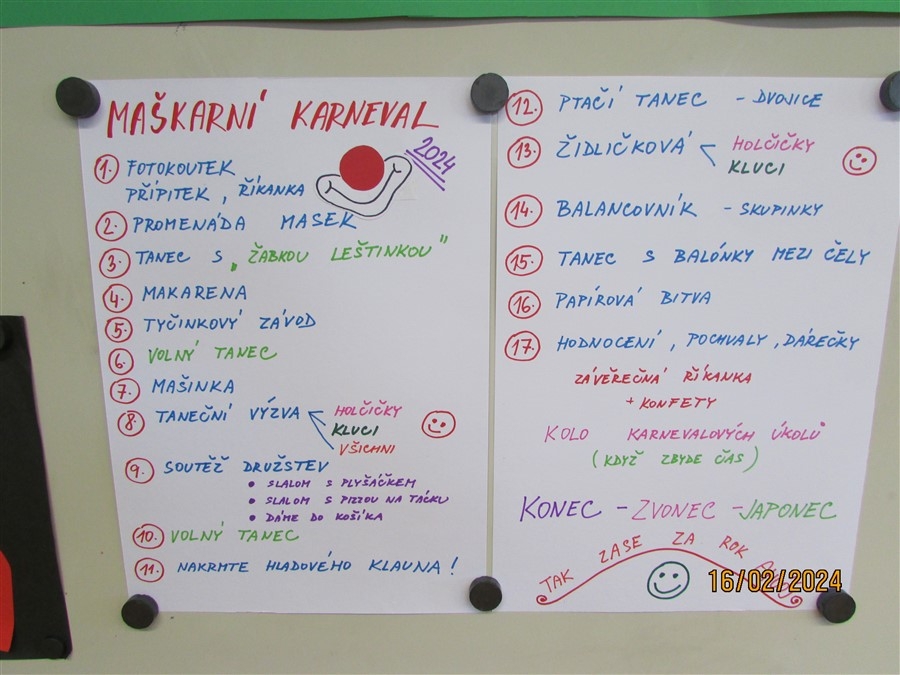 MAŠKARNÍ KARNEVAL
2024
1. FOTOKOUTEK
PŘÍPITEK, ŘÍKANKA
2. PROMENÁDA MASEK
3. TANEC S „ŽÁBKOU LEŠTINKOU"
4. MAKARENA
5. TYČINKOVÝ ZÁVOD
6. VOLNÝ TANEC
7. MAŠINKA
8. TANEČNÍ VÝZVA
HOLČIČKY
KLUCI
VŠICHNI
9. SOUTĚŽ DRUŽSTEV
• SLALOM S PLYŠÁČKEM
• SLALOM S PIZZOU NA TÁCKU
• DÁME DO KOŠÍKA
10. VOLNÝ TANEC
11. NAKRMTE HLADOVÉHO KLAUNA!
12. PTAČÍ TANEC - DVOJICE
13. ŽIDLIČKOVÁ
HOLČIČKY
KLUCI
14. BALANCOVNÍK - SKUPINKY
15. TANEC S BALÓNKY MEZI ČELY
16. PAPÍROVÁ BITVA
17. HODNOCENÍ, POCHVALY, DÁREČKY
ZÁVĚREČNÁ ŘÍKANKA
+ KONFETY
KOLO KARNEVALOVÝCH ÚKOLŮ
(KDYŽ ZBYDE ČAS)
KONEC - ZVONEC - JAPONEC
TAK ZASE ZA ROK
16/02/2024